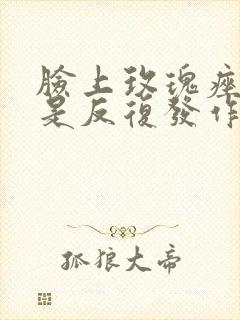 臉上玫瑰痤
是反復發作
孤狼大帝